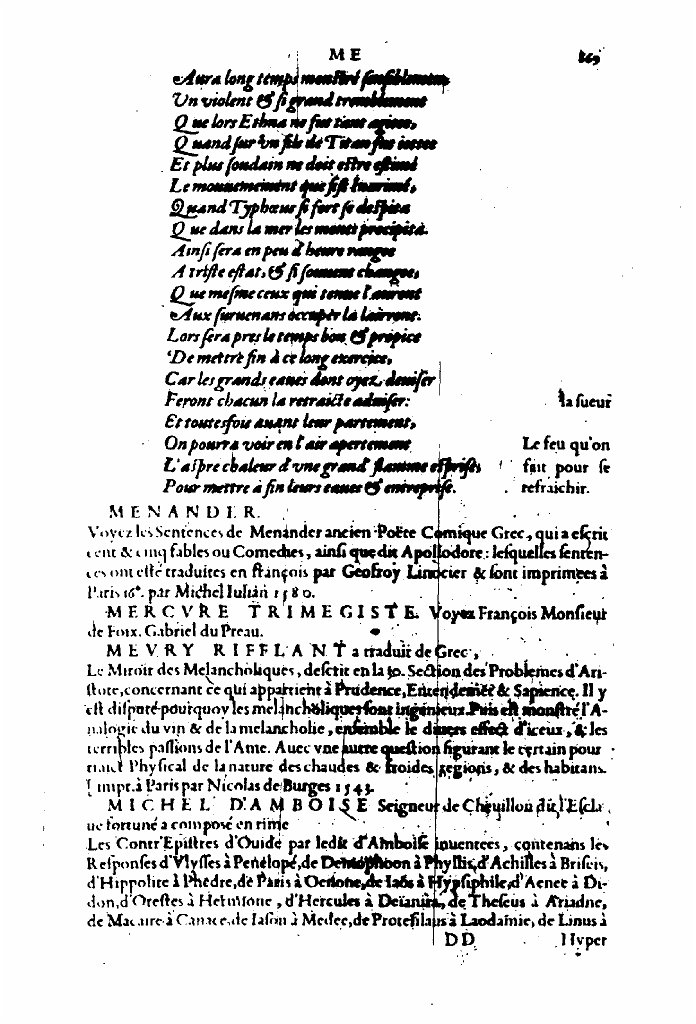 ME
Aura long temps monstré sensiblement,
Vn violent & si grand tremblement
Que lors Ethna ne fut tant agitee,
Quand sur vn file de Titan fut iettee
Et plus soudain ne doit estre estimé
Le mouuemement que fist Inarimé,
Quand Typhœus si fort se despita
Que dans la mer les monts precipita.
Ainsi sera en peu d'heure rangee
A triste estat, & si souuent changee,
Que mesme ceux qui tenue l'auront
Aux suruenans occuper la lairront.
Lors sera pres le temps bon & propice
De mettre fin à ce long exercice,
Car les grands eaues dont oyez deuiser
Feront chacun la retraicte aduiser: la sueur
Et toutesfois auant leur partement,
On pourra voir en l'air apertement Le feu qu'on
L'aspre chaleur d'vne grand' flamme esprise, fait pour se
Pour mettre à fin leurs eaues & entreprise. refraichir.
MENANDER.
Voyez les Sentences de Menander ancien Poëte Comique Grec, qui a escrit
cent & cinq fables ou Comedies, ainsi que dit Apollodore: lesquelles senten-
ces ont esté traduites en françois par Geofroy Linocier & sont imprimees à
Paris 16°. par Michel Iulian 1580.
MERCVRE TRIMEGISTE. Voyez François Monsieur
de Foix. Gabriel du Preau.
MEVRY RIFFLANT a traduit de Grec,
Le Miroir des Melancholiques, descrit en la 30. Section des Problemes d'Ari-
stote, concernant ce qui appartient à Prudence, Entendement & Sapience. Il y
est disputé pourquoy les melancholiques sont ingenieux. Puis est monstré l'A-
nalogie du vin & de la melancholie, ensemble le diuers effect d'iceux, & les
terribles passions de l'Ame. Auec vne autre question figurant le certain pour
traict Physical de la nature des chaudes & froides regions, & des habitans.
Impr. à Paris par Nicolas de Burges 1543.
MICHEL D'AMBOISE Seigneur de Cheuillon dit l'Escla
ue fortuné a composé en rime
Les Contr'Epistres d'Ouide par ledit d'Amboise inuentees, contenans les
Responses d'Vlysses à Penelopé, de Demophoon à Phyllis, d'Achilles à Briseis,
d'Hippolite à Phedre, de Paris à Oenone, de Iasō à Hypsiphile, d'Aenee à Di-
don, d'Orestes à Hermione, d'Hercules à Deïanira, de Theseus à Ariadne,
de Macaire à Canace, de Iason à Medee, de Protesilaus à Laodamie, de Linus à
DD Hyper